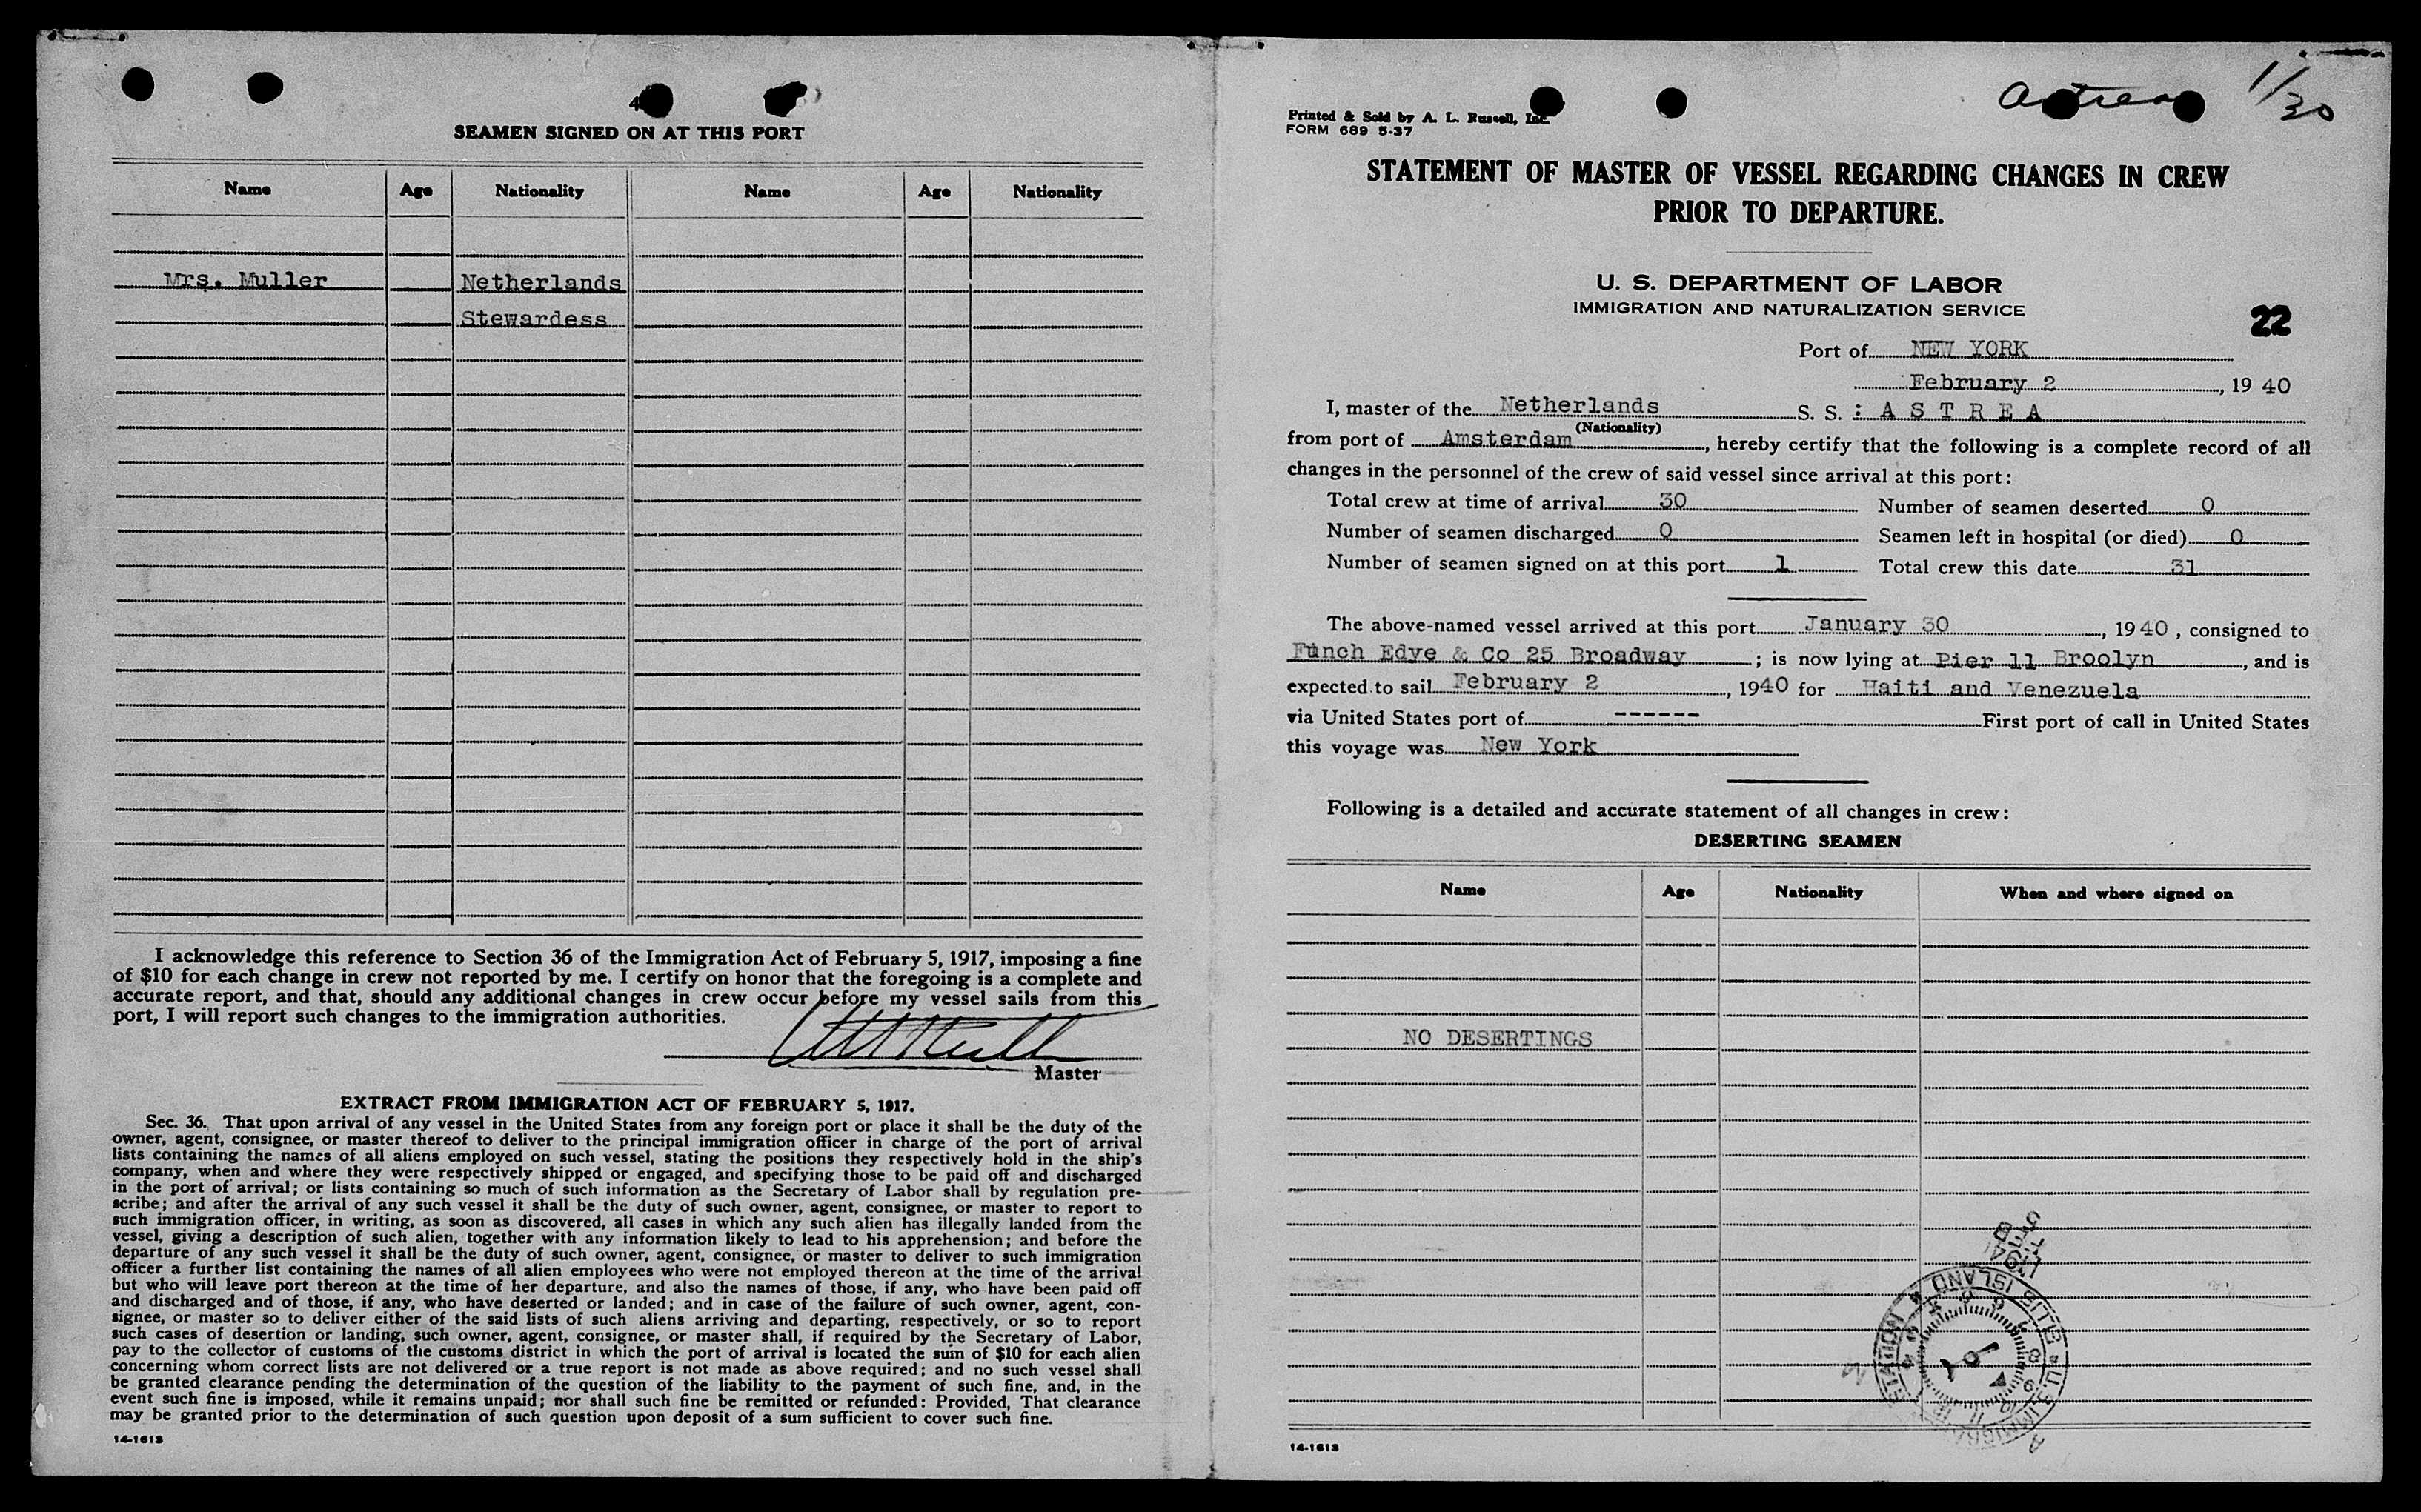 4
SEAMEN SIGNED ON AT THIS PORT
Name Age Nationality Name Age Nationality
Mrs. Muller Netherlands
Stewardess
I acknowledge this reference to Section 36 of the Immigration Act of February 5, 1917, imposing a fine
of $10 for each change in crew not reported by me. I certify on honor that the foregoing is a complete and
accurate report, and that, should any additional changes in crew occur before my vessel sails from this
port, I will report such changes to the immigration authorities.
Master
EXTRACT FROM IMMIGRATION ACT OF FEBRUARY 5, 1917.
Sec. 36. That upon arrival of any vessel in the United States from any foreign port or place it shall be the duty of the
owner, agent, consignee, or master thereof to deliver to the principal immigration officer in charge of the port of arrival
lists containing the names of all aliens employed on such vessel, stating the positions they respectively hold in the ship's
company, when and where they were respectively shipped or engaged, and specifying those to be paid off and discharged
in the port of arrival; or lists containing so much of such information as the Secretary of Labor shall by regulation pre-
scribe; and after the arrival of any such vessel it shall be the duty of such owner, agent, consignee, or master to report to
such immigration officer, in writing, as soon as discovered, all cases in which any such alien has illegally landed from the
vessel, giving a description of such alien, together with any information likely to lead to his apprehension; and before the
departure of any such vessel it shall be the duty of such owner, agent, consignee, or master to deliver to such immigration
officer a further list containing the names of all alien employees who were not employed thereon at the time of the arrival
but who will leave port thereon at the time of her departure, and also the names of those, if any, who have been paid off
and discharged and of those, if any, who have deserted or landed; and in case of the failure of such owner, agent, con-
signee, or master so to deliver either of the said lists of such aliens arriving and departing, respectively, or so to report
such cases of desertion or landing, such owner, agent, consignee, or master shall, if required by the Secretary of Labor,
pay to the collector of customs of the customs district in which the port of arrival is located the sum of $10 for each alien
concerning whom correct lists are not delivered or a true report is not made as above required; and no such vessel shall
be granted clearance pending the determination of the question of the liability to the payment of such fine, and, in the
event such fine is imposed, while it remains unpaid; nor shall such fine be remitted or refunded: Provided, That clearance
may be granted prior to the determination of such question upon deposit of a sum sufficient to cover such fine.
14-1613
Astrea 1/30
Printed & Sold by A. L. Russell, Inc.
FORM 689 5-37
STATEMENT OF MASTER OF VESSEL REGARDING CHANGES IN CREW
PRIOR TO DEPARTURE.
U. S. DEPARTMENT OF LABOR
IMMIGRATION AND NATURALIZATION SERVICE
22
Port of NEW YORK
February 2, 1940
I, master of the Netherlands S. S. : A S T R E A
(Nationality)
from port of Amsterdam, hereby certify that the following is a complete record of all
changes in the personnel of the crew of said vessel since arrival at this port:
Total crew at time of arrival 30 Number of seamen deserted 0
Number of seamen discharged 0 Seamen left in hospital (or died) 0
Number of seamen signed on at this port 1 Total crew this date 31
The above-named vessel arrived at this port January 30, 1940, consigned to
Funch Edye & Co 25 Broadway; is now lying at Pier 11 Broolyn, and is
expected to sail February 2, 1940 for Haiti and Venezuela
via United States port of ------ First port of call in United States
this voyage was New York
Following is a detailed and accurate statement of all changes in crew:
DESERTING SEAMEN
Name Age Nationality When and where signed on
NO DESERTINGS
ELLIS ISLAND STATION
14-1613